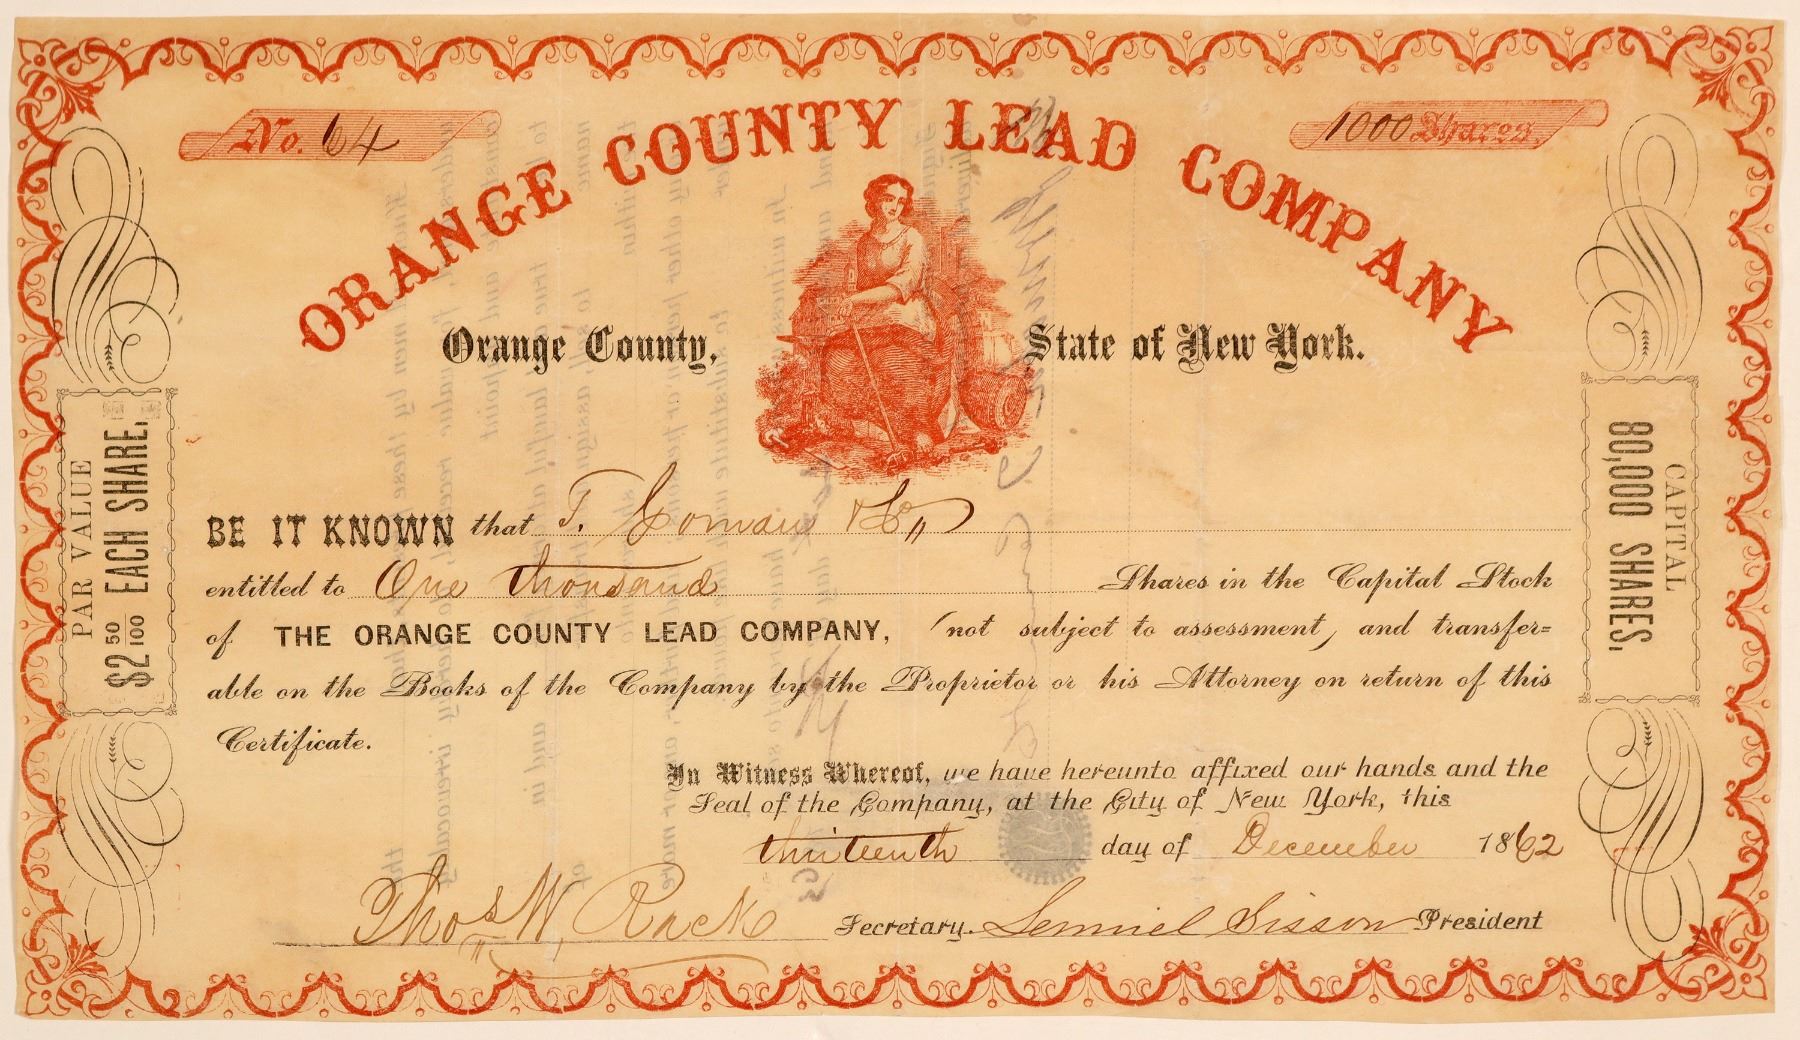 No. 64
1000 Shares.
ORANGE COUNTY LEAD COMPANY
Orange County, State of New York.
PAR VALUE
$2 50/100 EACH SHARE.
CAPITAL
80,000 SHARES.
BE IT KNOWN that T. Coman & Co
entitled to One thousand Shares in the Capital Stock
of THE ORANGE COUNTY LEAD COMPANY, (not subject to assessment) and transfer=
able on the Books of the Company by the Proprietor or his Attorney on return of this
Certificate.
In Witness Whereof, we have hereunto affixed our hands and the
Seal of the Company, at the City of New York, this
thirteenth day of December 1862
Thos W. Rack Secretary. Lemuel Sisson President